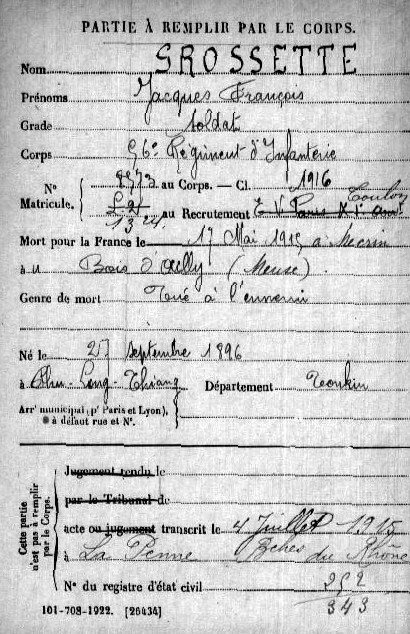 PARTIE À REMPLIR PAR LE CORPS.
Nom GROSSETTE
Prénoms Jacques François
Grade soldat
Corps 56e Régiment d'Infanterie
N° 8573 au Corps. — Cl. 1916
Matricule. 1324 au Recrutement Toulon
Mort pour la France le 17 Mai 1915 à Mécrin
à u Bois d'Ailly (Meuse)
Genre de mort Tué à l'ennemi
Né le 25 septembre 1896
à Département Tonkin
Arrt municipal (pr Paris et Lyon),
à défaut rue et N°.
Cette partie
n'est pas à remplir
par le Corps.
Jugement rendu le
par le Tribunal de
acte ou jugement transcrit le 4 Juillet 1915
à La Penne Bches du Rhône
N° du registre d'état civil
343
101-708-1922. [26434]